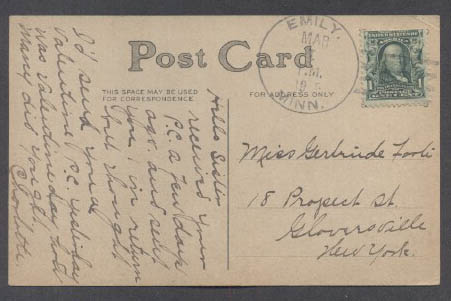 Post Card
THIS SPACE MAY BE USED
FOR CORRESPONDENCE
FOR ADDRESS ONLY
EMILY,
MAR
P.M.
MINN.
Hello Sister
received your
P.C. a few days
ago and will
you in return
but thought
I'd send you a
Valentine P.C. yesterday
was Valentine day
Many did you get
Charlotte.
Miss Gertrude
18 Prospect St.
Gloversville
New York.